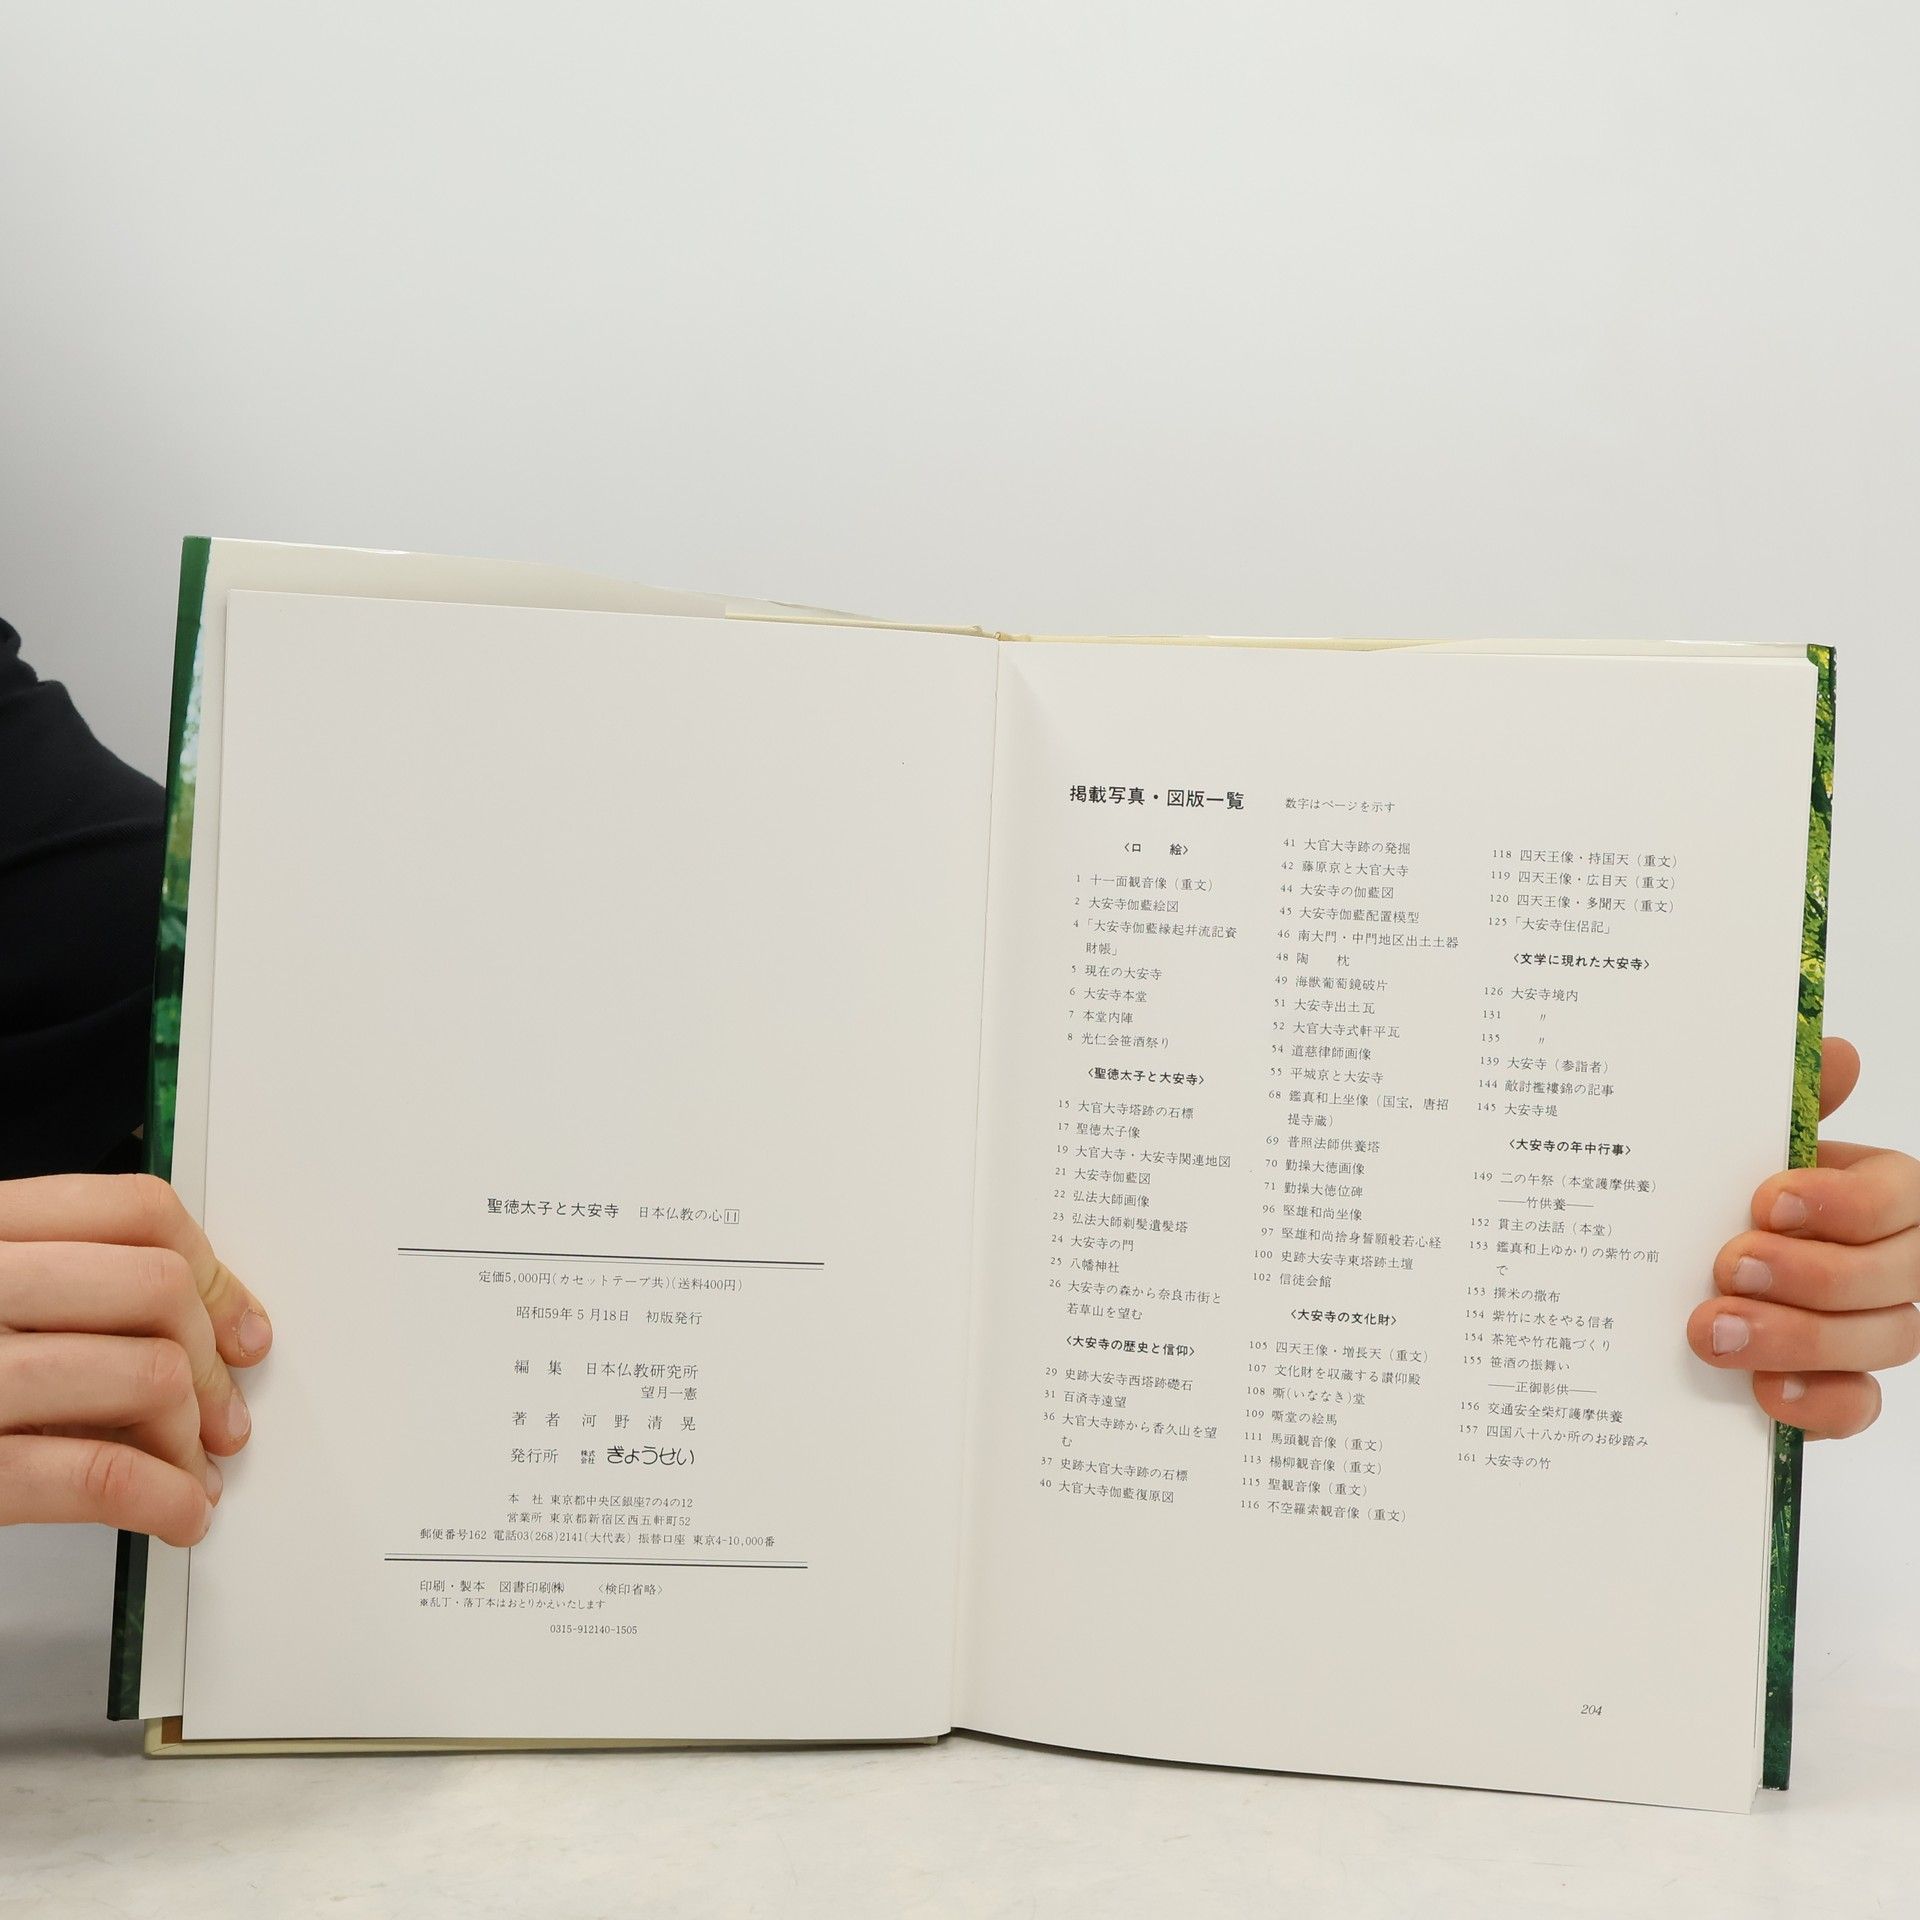 聖徳太子と大安寺 日本仏教の心11
定価5,000円(カセットテープ共)(送料400円)
昭和59年5月18日 初版発行
編 集 日本仏教研究所
望月一憲
著 者 河 野 清 晃
発行所 株式会社 ぎょうせい
本 社 東京都中央区銀座7の4の12
営業所 東京都新宿区西五軒町52
郵便番号162 電話03(268)2141(大代表) 振替口座 東京4-10,000番
印刷・製本 図書印刷㈱ 〈検印省略〉
※乱丁・落丁本はおとりかえいたします
0315-912140-1505
掲載写真・図版一覧 数字はページを示す
〈口 絵〉
1 十一面観音像（重文）
2 大安寺伽藍絵図
4「大安寺伽藍縁起幷流記資
財帳」
5 現在の大安寺
6 大安寺本堂
7 本堂内陣
8 光仁会笹酒祭り
〈聖徳太子と大安寺〉
15 大官大寺塔跡の石標
17 聖徳太子像
19 大官大寺・大安寺関連地図
21 大安寺伽藍図
22 弘法大師画像
23 弘法大師剃髪遺髪塔
24 大安寺の門
25 八幡神社
26 大安寺の森から奈良市街と
若草山を望む
〈大安寺の歴史と信仰〉
29 史跡大安寺西塔跡礎石
31 百済寺遠望
36 大官大寺跡から香久山を望
む
37 史跡大官大寺跡の石標
40 大官大寺伽藍復原図
41 大官大寺跡の発掘
42 藤原京と大官大寺
44 大安寺の伽藍図
45 大安寺伽藍配置模型
46 南大門・中門地区出土土器
48 陶 枕
49 海獣葡萄鏡破片
51 大安寺出土瓦
52 大官大寺式軒平瓦
54 道慈律師画像
55 平城京と大安寺
68 鑑真和上坐像（国宝，唐招
提寺蔵）
69 普照法師供養塔
70 勤操大徳画像
71 勤操大徳位碑
96 堅雄和尚坐像
97 堅雄和尚捨身誓願般若心経
100 史跡大安寺東塔跡土壇
102 信徒会館
〈大安寺の文化財〉
105 四天王像・増長天（重文）
107 文化財を収蔵する讃仰殿
108 嘶(いななき)堂
109 嘶堂の絵馬
111 馬頭観音像（重文）
113 楊柳観音像（重文）
115 聖観音像（重文）
116 不空羅索観音像（重文）
118 四天王像・持国天（重文）
119 四天王像・広目天（重文）
120 四天王像・多聞天（重文）
125「大安寺住侶記」
〈文学に現れた大安寺〉
126 大安寺境内
131 〃
135 〃
139 大安寺（参詣者）
144 敵討襤褸錦の記事
145 大安寺堤
〈大安寺の年中行事〉
149 二の午祭（本堂護摩供養）
――竹供養――
152 貫主の法話（本堂）
153 鑑真和上ゆかりの紫竹の前
で
153 撰米の撒布
154 紫竹に水をやる信者
154 茶筅や竹花籠づくり
155 笹酒の振舞い
――正御影供――
156 交通安全柴灯護摩供養
157 四国八十八か所のお砂踏み
161 大安寺の竹
204